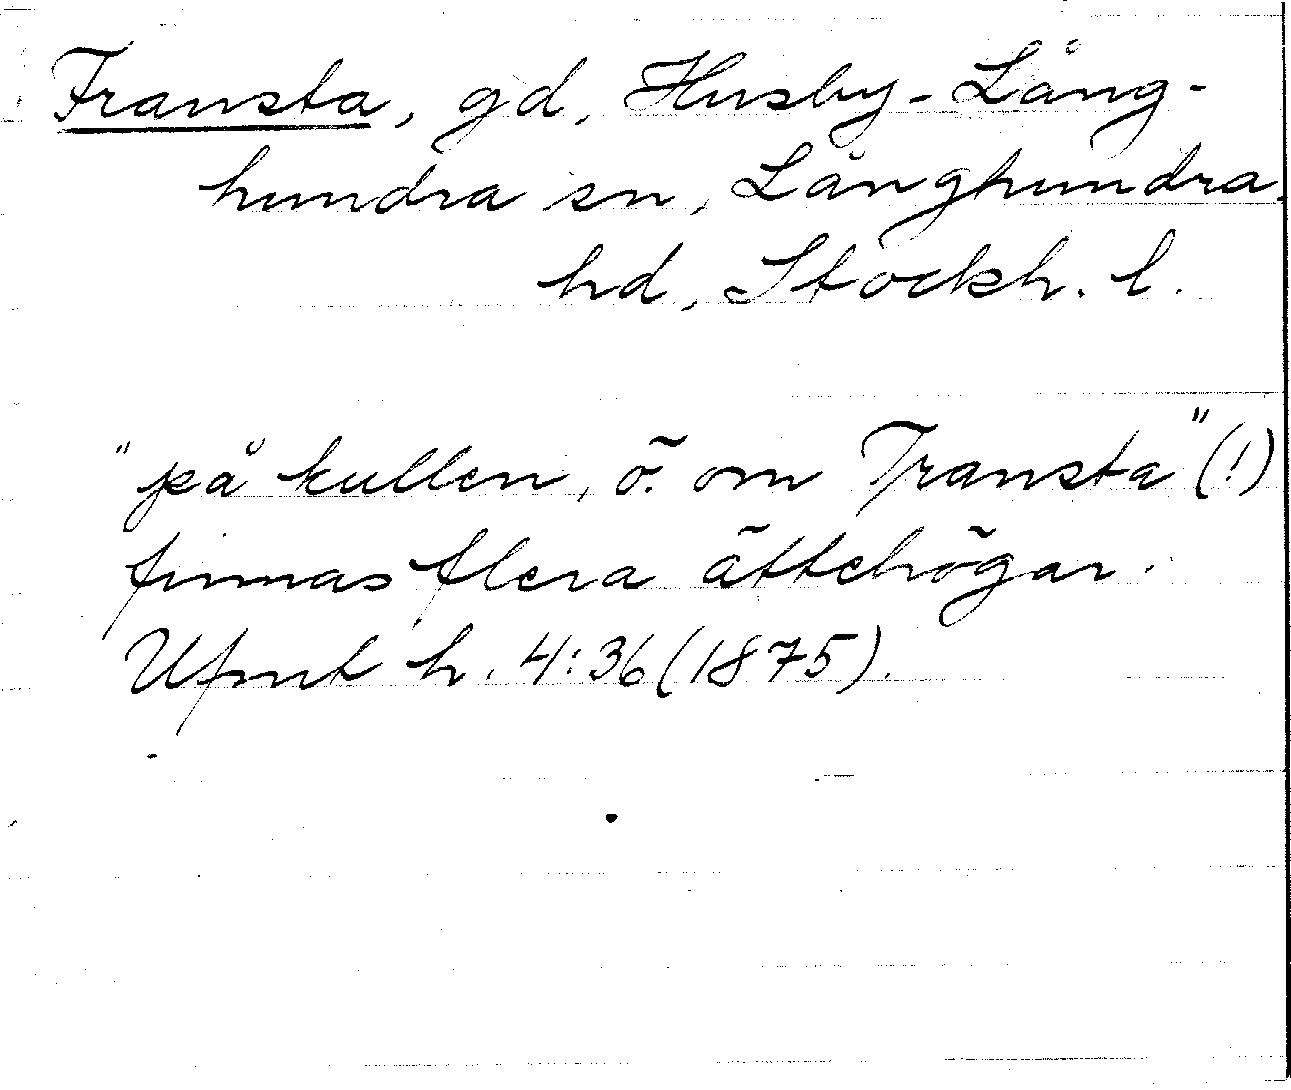 Fransta, gd, Husby-Lång-
hundra sn, Långhundra
hd, Stockh. l.
"på kullen, ö. om Transta" (!)
finnas flera ättehögar.
Ufmt h. 4:36 (1875).